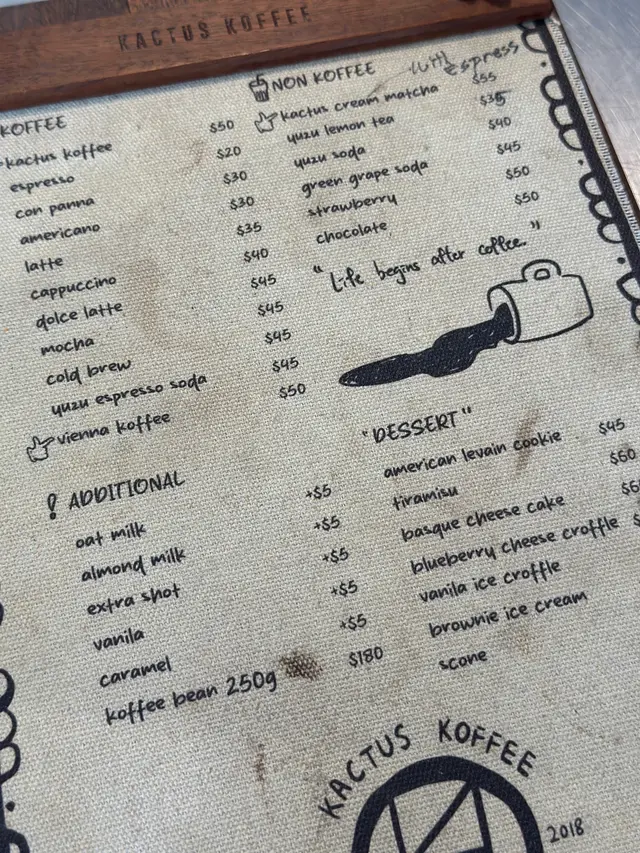 KACTUS KOFFEE
KOFFEE
kactus koffee $50
espresso $20
con panna $30
americano $30
latte $35
cappuccino $40
dolce latte $45
mocha $45
cold brew $45
yuzu espresso soda $45
vienna koffee $50
! ADDITIONAL
oat milk +$5
almond milk +$5
extra shot +$5
vanila +$5
caramel +$5
koffee bean 250g $180
NON KOFFEE with espress
kactus cream matcha $55
yuzu lemon tea $35
yuzu soda $40
green grape soda $45
strawberry $50
chocolate $50
"Life begins after coffee."
"DESSERT"
american levain cookie $45
tiramisu $60
basque cheese cake
blueberry cheese croffle
vanila ice croffle
brownie ice cream
scone
KACTUS KOFFEE
2018